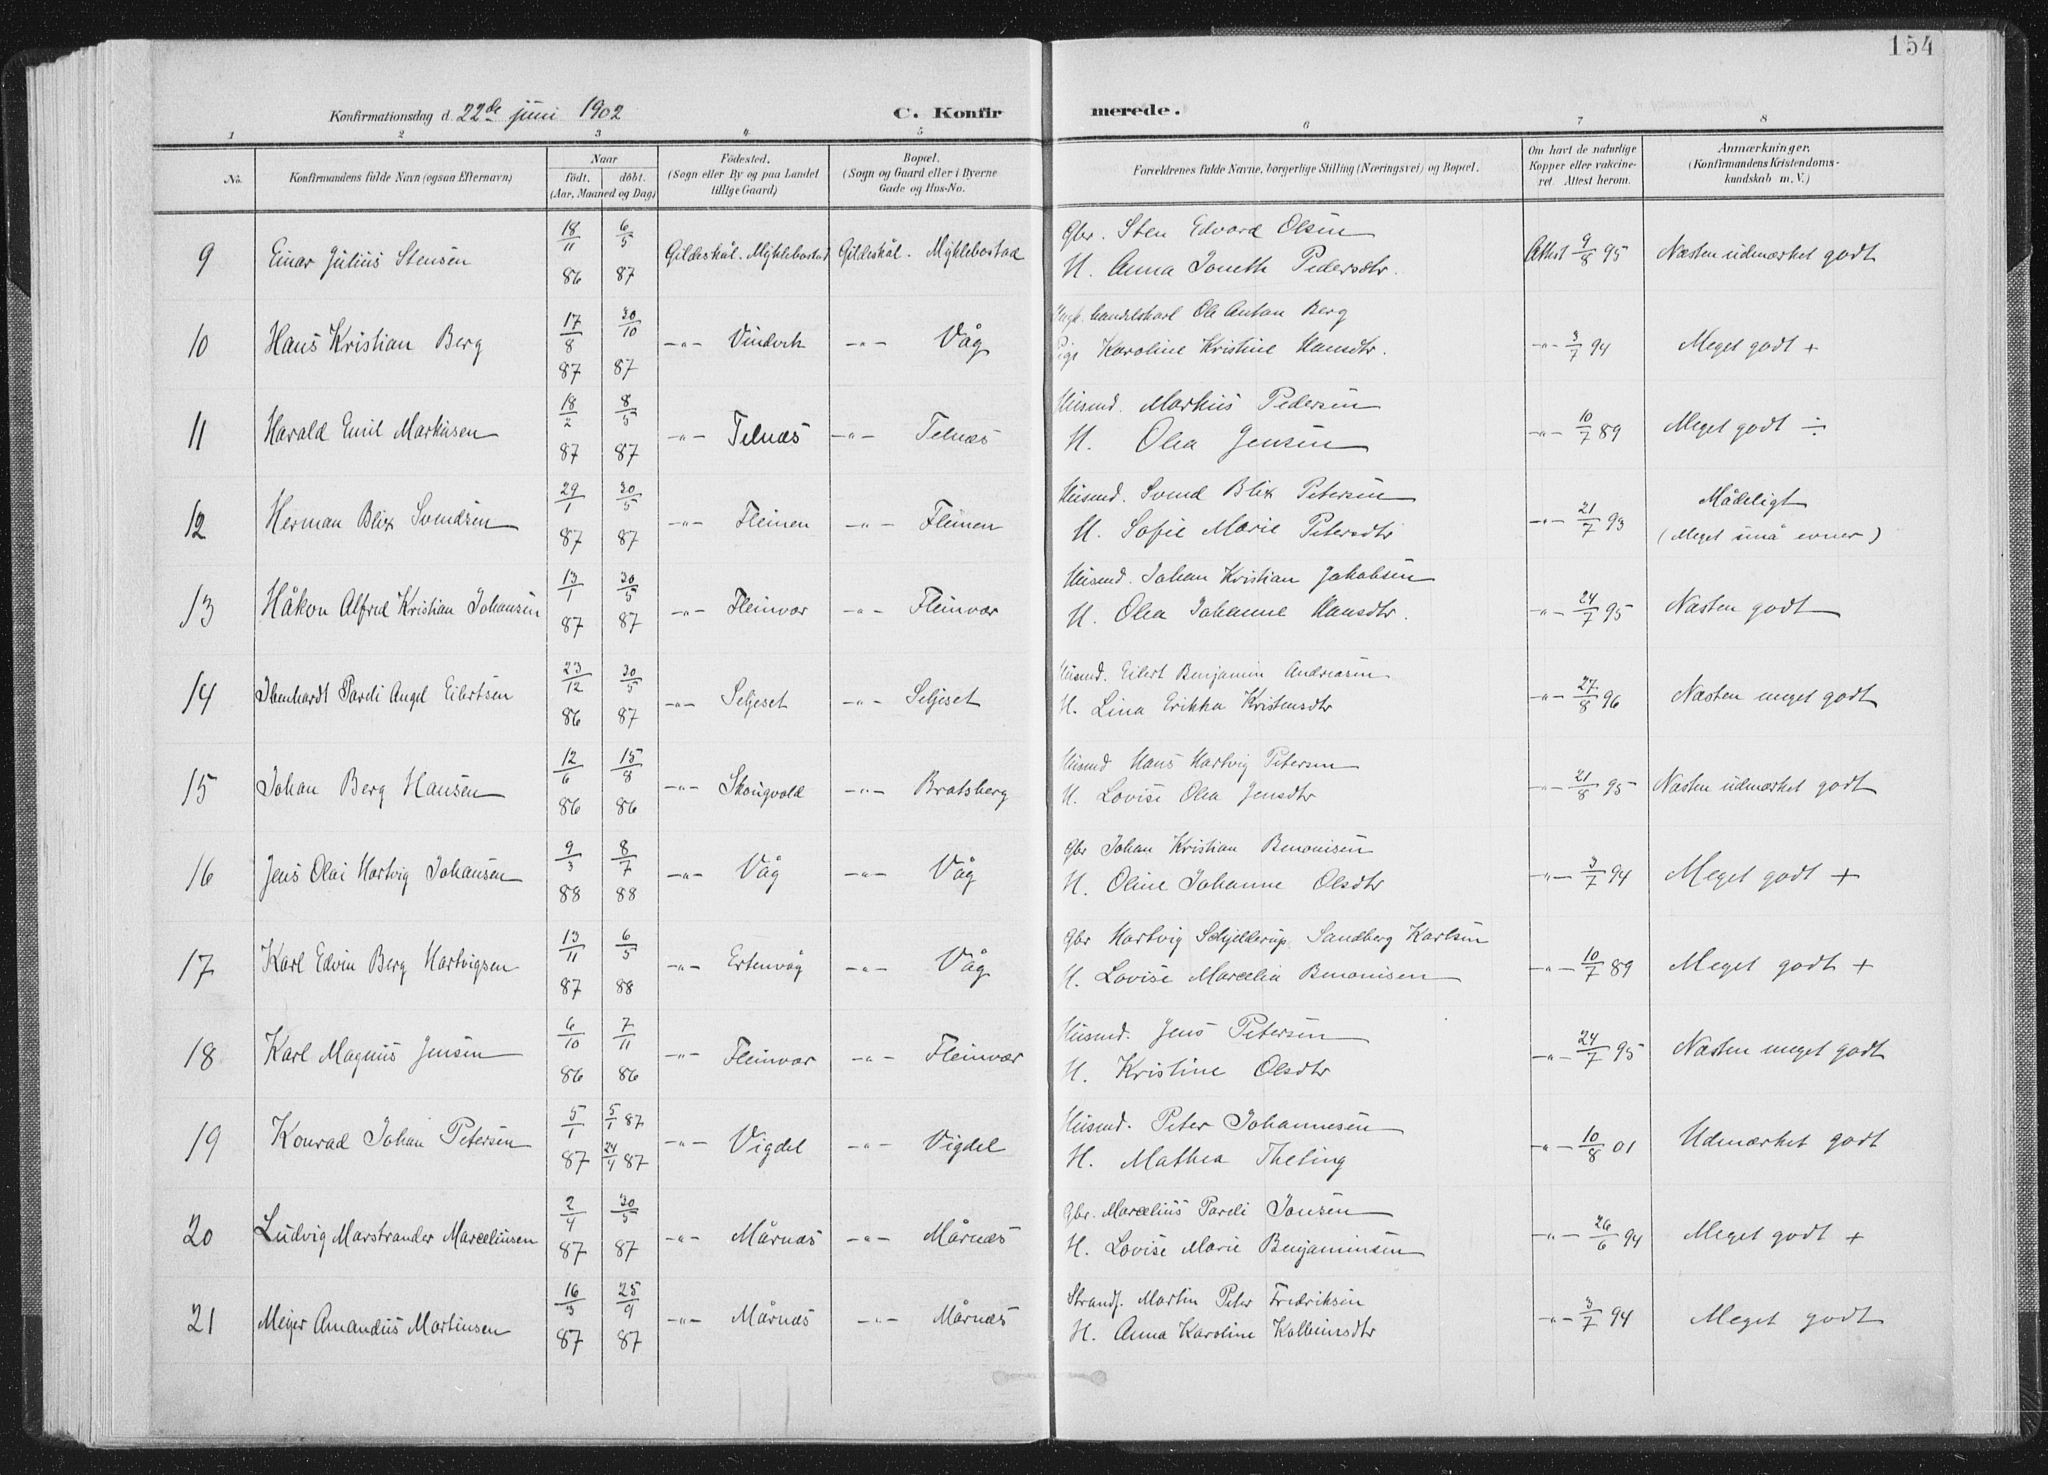 154
Konfirmationsdag d. 22de juni 1902 C. Konfirmerede.
1 2 3 4 5 6 7 8
No. Konfirmandens fulde Navn (ogsaa Efternavn) Naar födt. döbt. (Aar, Maaned og Dag) Födested. (Sogn eller By og paa Landet tillige Gaard) Bopæl. (Sogn og Gaard eller i Byerne Gade og Hus-No. Forældrenes fulde Navne, borgerlige Stilling (Næringsvei) og Bopæl. Om havt de naturlige Kopper eller vakcineret. Attest herom. Anmærkninger. (Konfirmandens Kristendomskundskab m. V.)
9 Einar Julius Stensen 18/11 86 6/5 87 Gildeskål. Myklebostad Gildeskål. Myklebostad Gbr. Sten Edvard Olsen
H. Anna Joneth Pedersdtr. Attest 9/8 95 Næsten udmærket godt
10 Hans Kristian Berg 17/8 87 30/10 87 -"- Vindvik -"- Våg Ungk. handelskarl Ole Anton Berg
Pige Karoline Kristine Hansdtr. -"- 3/7 94 Meget godt +
11 Harald Emil Markusen 18/2 87 8/5 87 -"- Telnæs -"- Telnæs Husmd. Markus Pedersen
H. Olea Jensen -"- 10/7 89 Meget godt ÷
12 Herman Blix Svendsen 29/1 87 30/5 87 -"- Fleinen -"- Fleinen Husmd. Svend Blix Petersen
H. Sofie Marie Petersdtr -"- 21/7 93 Mådeligt
(Meget små evner)
13 Håkon Alfred Kristian Johansen 13/1 87 30/5 87 -"- Fleinvær -"- Fleinvær Husmd. Johan Kristian Jakobsen
H. Olea Johanne Hansdtr. -"- 24/7 95 Næsten godt
14 Ibenhardt Pareli Angel Eilertsen 23/12 86 30/5 87 -"- Seljeset -"- Seljeset Husmd. Eilert Benjamin Andreasen
H. Lina Erikka Kristensdtr -"- 27/8 96 Næsten meget godt
15 Johan Berg Hansen 12/6 86 15/8 86 -"- Skougvold -"- Bratsberg Husmd Hans Hartvig Petersen
H. Lovise Olea Jensdtr -"- 21/8 95 Næsten udmærket godt
16 Jens Olai Hartvig Johansen 9/3 88 8/7 88 -"- Våg -"- Våg Gbr Johan Kristian Benonisen
H. Oline Johanne Olsdtr -"- 3/7 94 Meget godt +
17 Karl Edvin Berg Hartvigsen 13/11 87 6/5 88 -"- Ertenvåg -"- Våg Gbr Hartvig Schjelderup Sandberg Karlsen
H. Lovise Marcelia Benonisen -"- 10/7 89 Meget godt +
18 Karl Magnus Jensen 6/10 86 7/11 86 -"- Fleinvær -"- Fleinvær Husmd. Jens Petersen
H. Kristine Olsdtr -"- 24/7 95 Næsten meget godt
19 Konrad Johan Petersen 5/1 87 5/1 87 24/4 87 -"- Vigdel -"- Vigdel Husmd. Peter Johannesen
H. Mathea Theting -"- 10/8 01 Udmærket godt
20 Ludvig Marstrander Marceliusen 2/4 87 30/5 87 -"- Mårnæs -"- Mårnæs Gbr. Marcelius Pareli Jonsen
H. Lovise Marie Benjaminsen -"- 26/6 94 Meget godt +
21 Meyer Amandus Martinsen 16/3 87 25/9 87 -"- Mårnæs -"- Mårnæs Strands. Martin Peter Fredriksen
H. Anna Karoline Kolbeinsdtr -"- 3/7 94 Meget godt